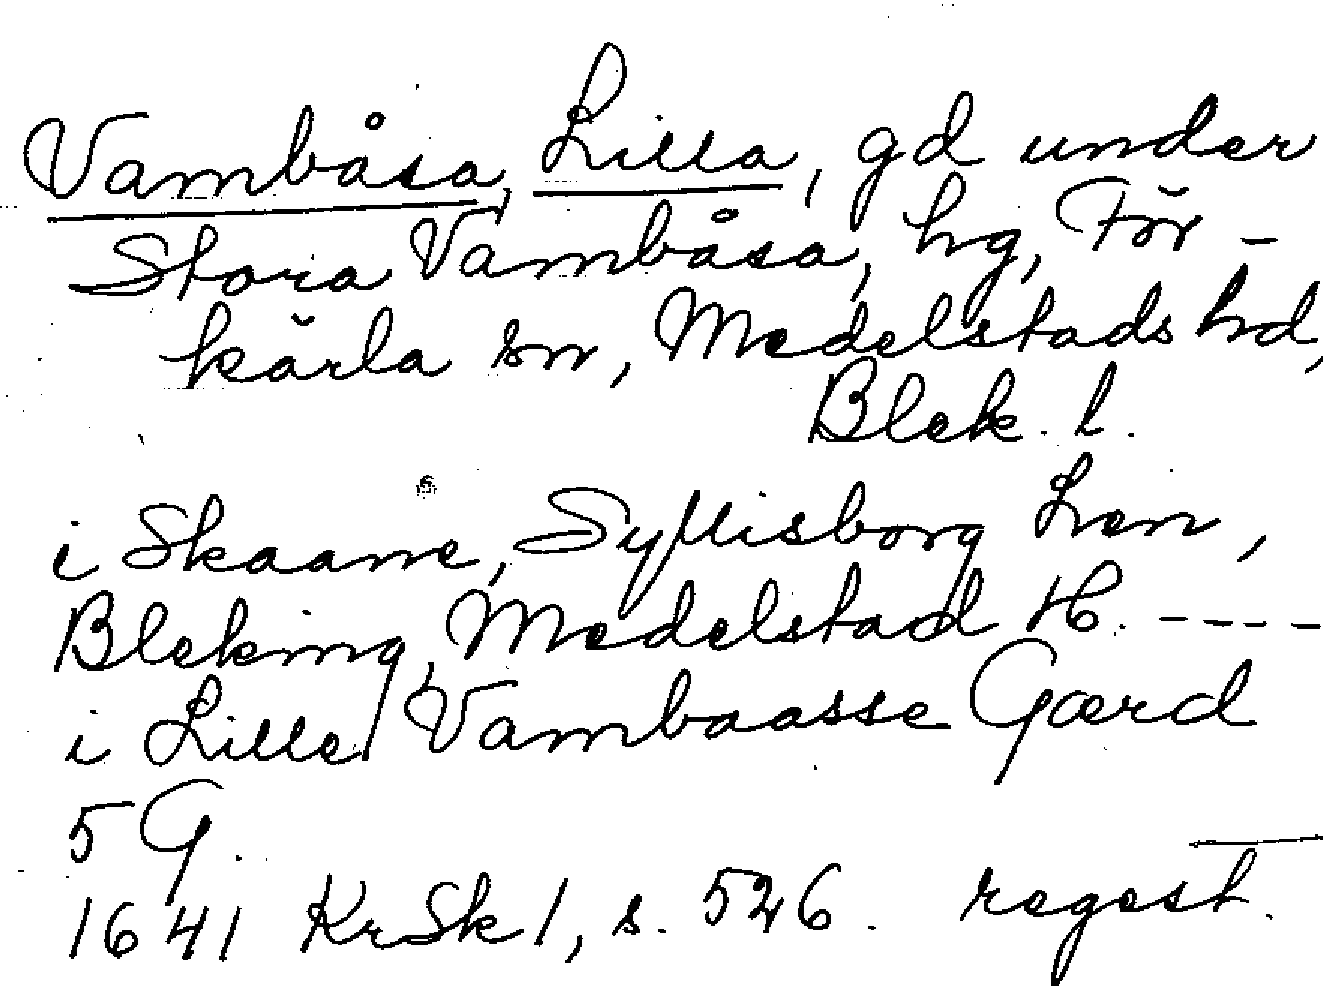 Vambåsa, Lilla, gd under
Stora Vambåsa, hg, För-
kärla sn, Medelstads hd,
Blek. l.
i Skaane, Syllisborg Len,
Bleking, Medelstad H. ----
i Lille Vambaasse Gærd
5 G.
1641 KrSk 1, s. 526. regest.